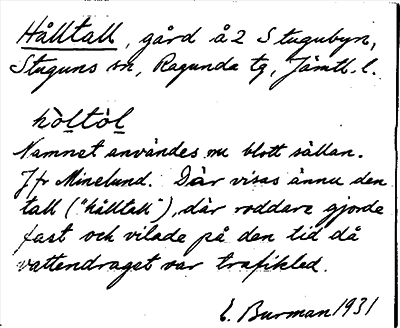 Hålltall, gård å 2 Stugubyn,
Stuguns sn, Ragunda tg, Jämtl. l.
hòltòl
Namnet användes nu blott sällan.
Jfr Minelund. Där visas ännu den
tall ("hålltall"), där roddare gjorde
fast och vilade på den tid då
vattendraget var trafikled.
E. Burman 1931